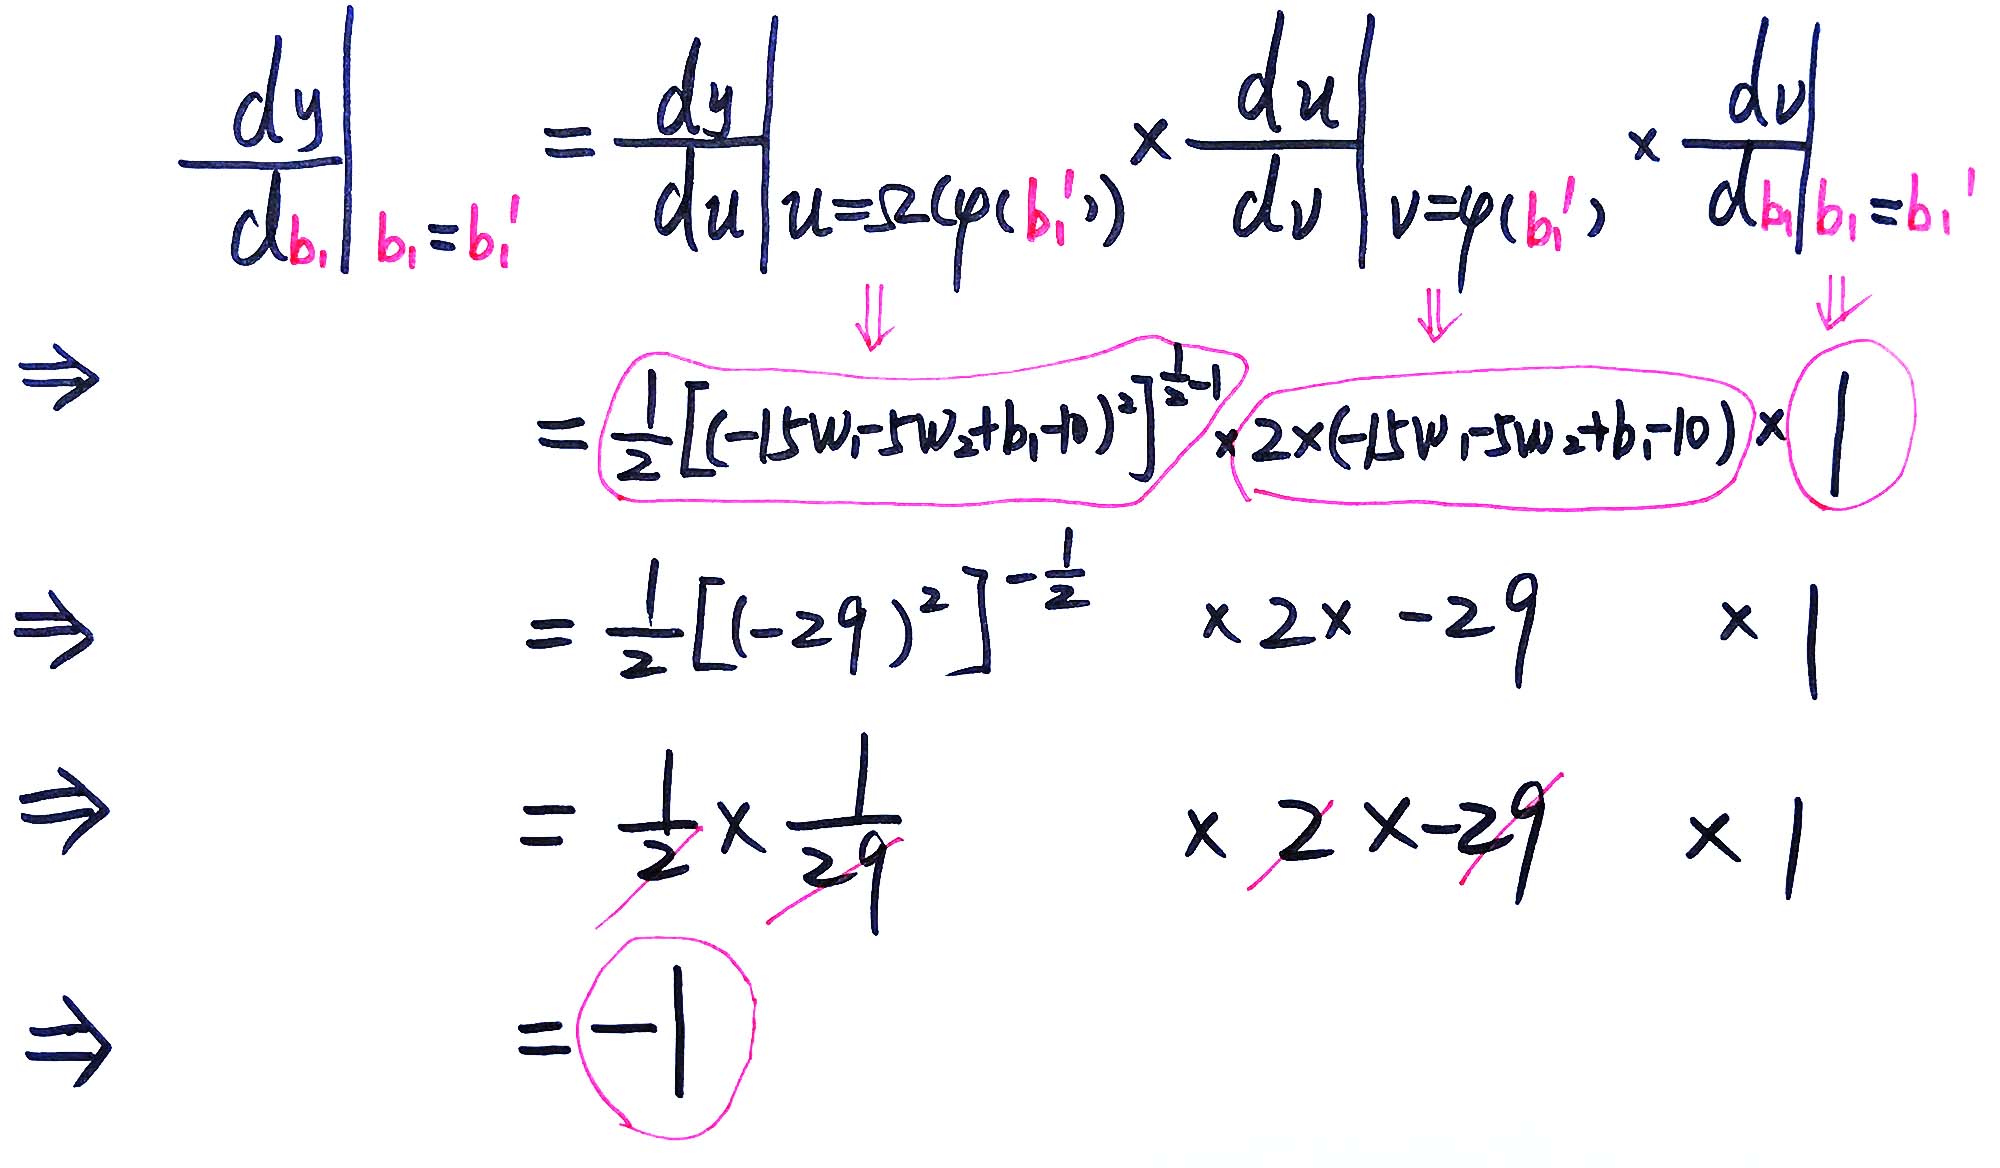 dy/db₁ | b₁=b₁' = dy/du | u=Ω(φ(b₁')) × du/dv | v=φ(b₁') × dv/db₁ | b₁=b₁'
⇓ ⇓ ⇓
⇒ = 1/2 [(-15w₁-5w₂+b₁-10)²]^(1/2-1) × 2×(-15w₁-5w₂+b₁-10) × 1
⇒ = 1/2 [(-29)²]^(-1/2) × 2× -29 × 1
⇒ = 1/2 × 1/29 × 2 × -29 × 1
⇒ = -1